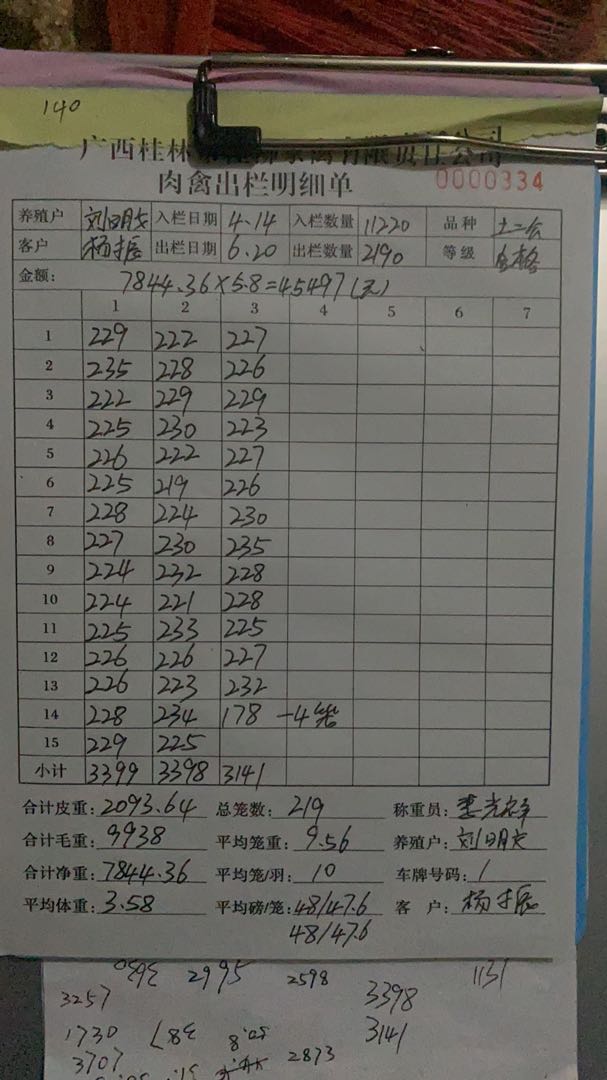 140
广西桂林
肉禽出栏明细单 0000334
养殖户 刘明文 入栏日期 4.14 入栏数量 11220 品种 土二公
客户 杨振 出栏日期 6.20 出栏数量 2190 等级 合格
金额: 7844.36×5.8=45497(元)
1 2 3 4 5 6 7
1 229 222 227
2 235 228 226
3 222 229 229
4 225 230 223
5 226 222 227
6 225 219 226
7 228 224 230
8 227 230 235
9 224 232 228
10 224 221 228
11 225 233 225
12 226 226 227
13 226 223 232
14 228 234 178 -4笼
15 229 225
小计 3399 3398 3141
合计皮重: 2093.64 总笼数: 219 称重员:
合计毛重: 9938 平均笼重: 9.56 养殖户: 刘明文
合计净重: 7844.36 平均笼/羽: 10 车牌号码: /
平均体重: 3.58 平均磅/笼: 48/47.6 客 户: 杨振
48/47.6
2995 2598 1131
3257 3398
1730 387 50.8 3141
3707 2873